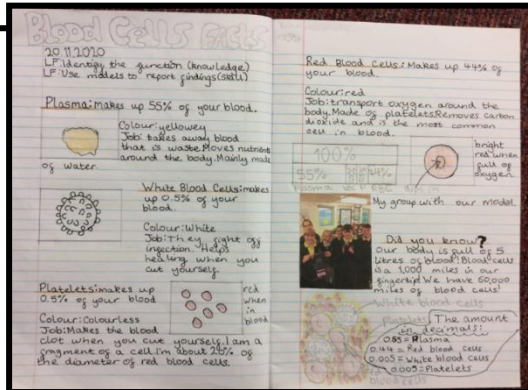 Blood Cells Facts
20.11.2020
LF: Identify the function (knowledge)
LF: Use models to report findings (skill)
Plasma: makes up 55% of your blood.
Colour: yellowey
Job: takes away blood
that is waste. Moves nutrients
around the body. Mainly made
of water.
White Blood Cells: makes
up 0.5% of your
blood.
Colour: White
Job: They fight off
infection. Helps
healing when you
cut yourself.
Platelets: makes up
0.5% of your blood
Colour: Colourless
Job: Makes the blood
clot when you cut yourself. I am a
fragment of a cell. I'm about 20% of
the diameter of red blood cells.
red
when
in
blood
Red Blood Cells: Makes up 44% of
your blood.
Colour: red
Job: transport oxygen around the
body. Made of platelets. Removes carbon
dioxide and is the most common
cell in blood.
100%
55%
44%
Plasma
bright
red when
full of
oxygen.
My group with our model.
Did you know?
Our body is full of 5
litres of blood! Blood cells
is a 1,000 miles in our
fingertip! We have 60,000
miles of blood cells!
White blood cells
Platelets
The amount
in decimals:
0.55 = Plasma
0.44 = Red blood cells
0.005 = White blood cells
0.005 = Platelets